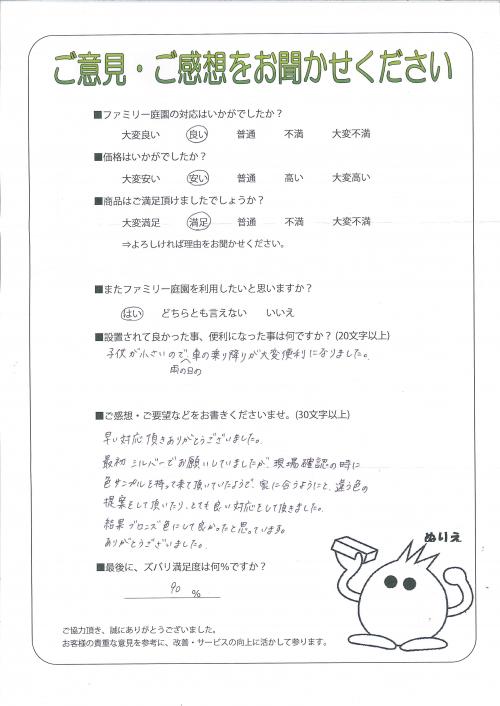 ご意見・ご感想をお聞かせください
■ファミリー庭園の対応はいかがでしたか？
大変良い 良い 普通 不満 大変不満
■価格はいかがでしたか？
大変安い 安い 普通 高い 大変高い
■商品はご満足頂けましたでしょうか？
大変満足 満足 普通 不満 大変不満
⇒よろしければ理由をお聞かせください。
■またファミリー庭園を利用したいと思いますか？
はい どちらとも言えない いいえ
■設置されて良かった事、便利になった事は何ですか？(20文字以上)
子供が小さいので、車の乗り降りが大変便利になりました。
雨の日の
■ご感想・ご要望などをお書きくださいませ。(30文字以上)
早い対応頂きありがとうございました。
最初シルバーでお願いしていましたが、現場確認の時に
色サンプルを持って来て頂いていたようで、家に合うようにと、違う色の
提案をして頂いたり、とても良い対応をして頂きました。
結果ブロンズ色にして良かったと思っています。
ありがとうございました。
ぬりえ
■最後に、ズバリ満足度は何％ですか？
90 ％
ご協力頂き、誠にありがとうございました。
お客様の貴重な意見を参考に、改善・サービスの向上に活かして参ります。